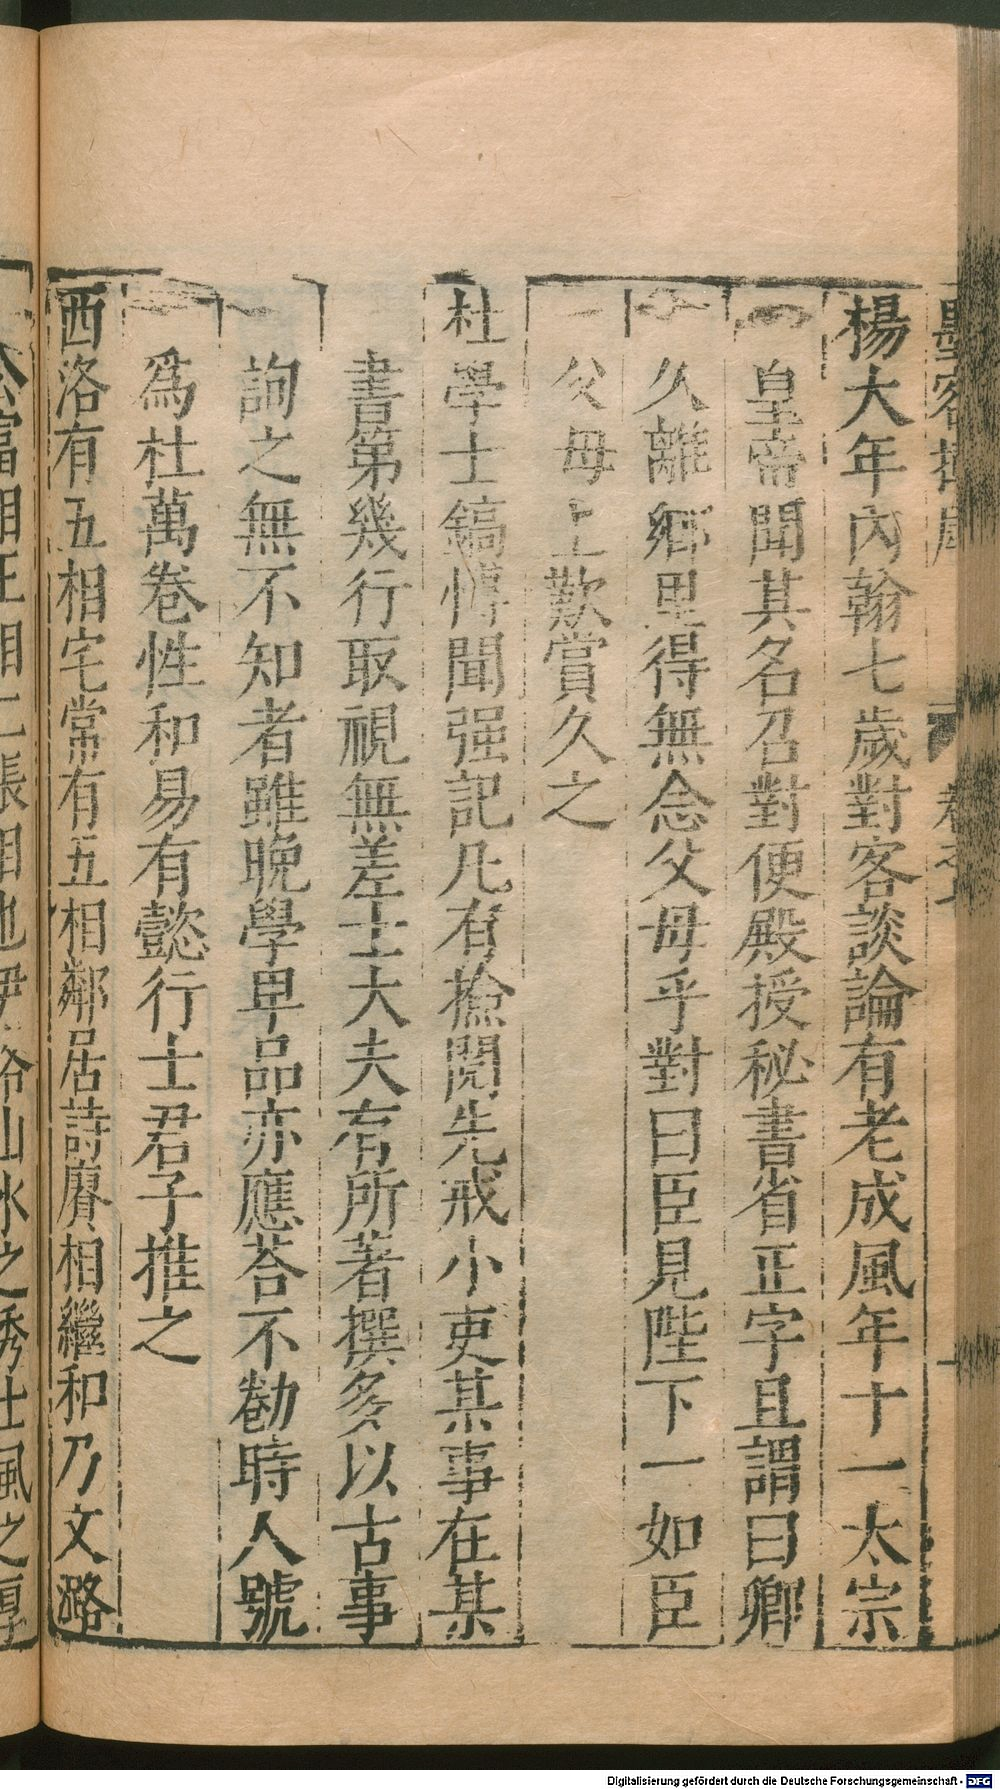 楊大年內翰七歲對客談論有老成風年十一太宗
皇帝聞其名召對便殿授秘書省正字且謂曰卿
久離鄉里得無念父母乎對曰臣見陛下一如臣
父母上歎賞久之
杜學士鎬博聞强記凡有撿閱先戒小吏某事在某
書第幾行取視無差士大夫有所著撰多以古事
詢之無不知者雖晚學卑品亦應荅不勌時人號
爲杜萬卷性和易有懿行士君子推之
西洛有五相宅常有五相鄰居詩賡相繼和乃文潞
公富相王相二張相也伊洛山水之秀士風之厚
Digitalisierung gefördert durch die Deutsche Forschungsgemeinschaft - DFG